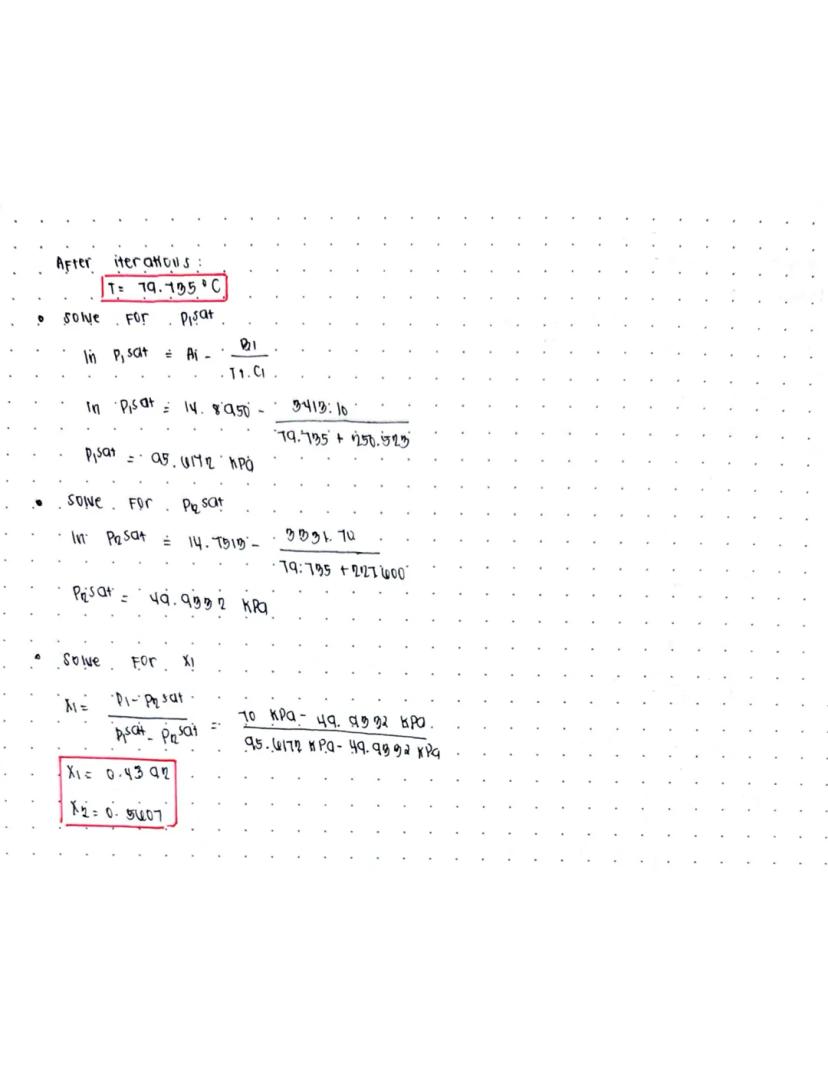 After iterations:
T = 79.735°C
• Solve for P1sat
ln P1sat = Ai - B1
T+C1
ln P1sat = 14.8950 - 3413.10
79.735 + 250.523
P1sat = 95.6172 kPa
• Solve for P2sat
ln P2sat = 14.7513 - 3331.70
79.735 + 227.600
P2sat = 49.9332 kPa
• Solve for X1
X1 = P1 - P2sat = 70 kPa - 49.9332 kPa
P1sat - P2sat 95.6172 kPa - 49.9332 kPa
X1 = 0.4392
X2 = 0.5607